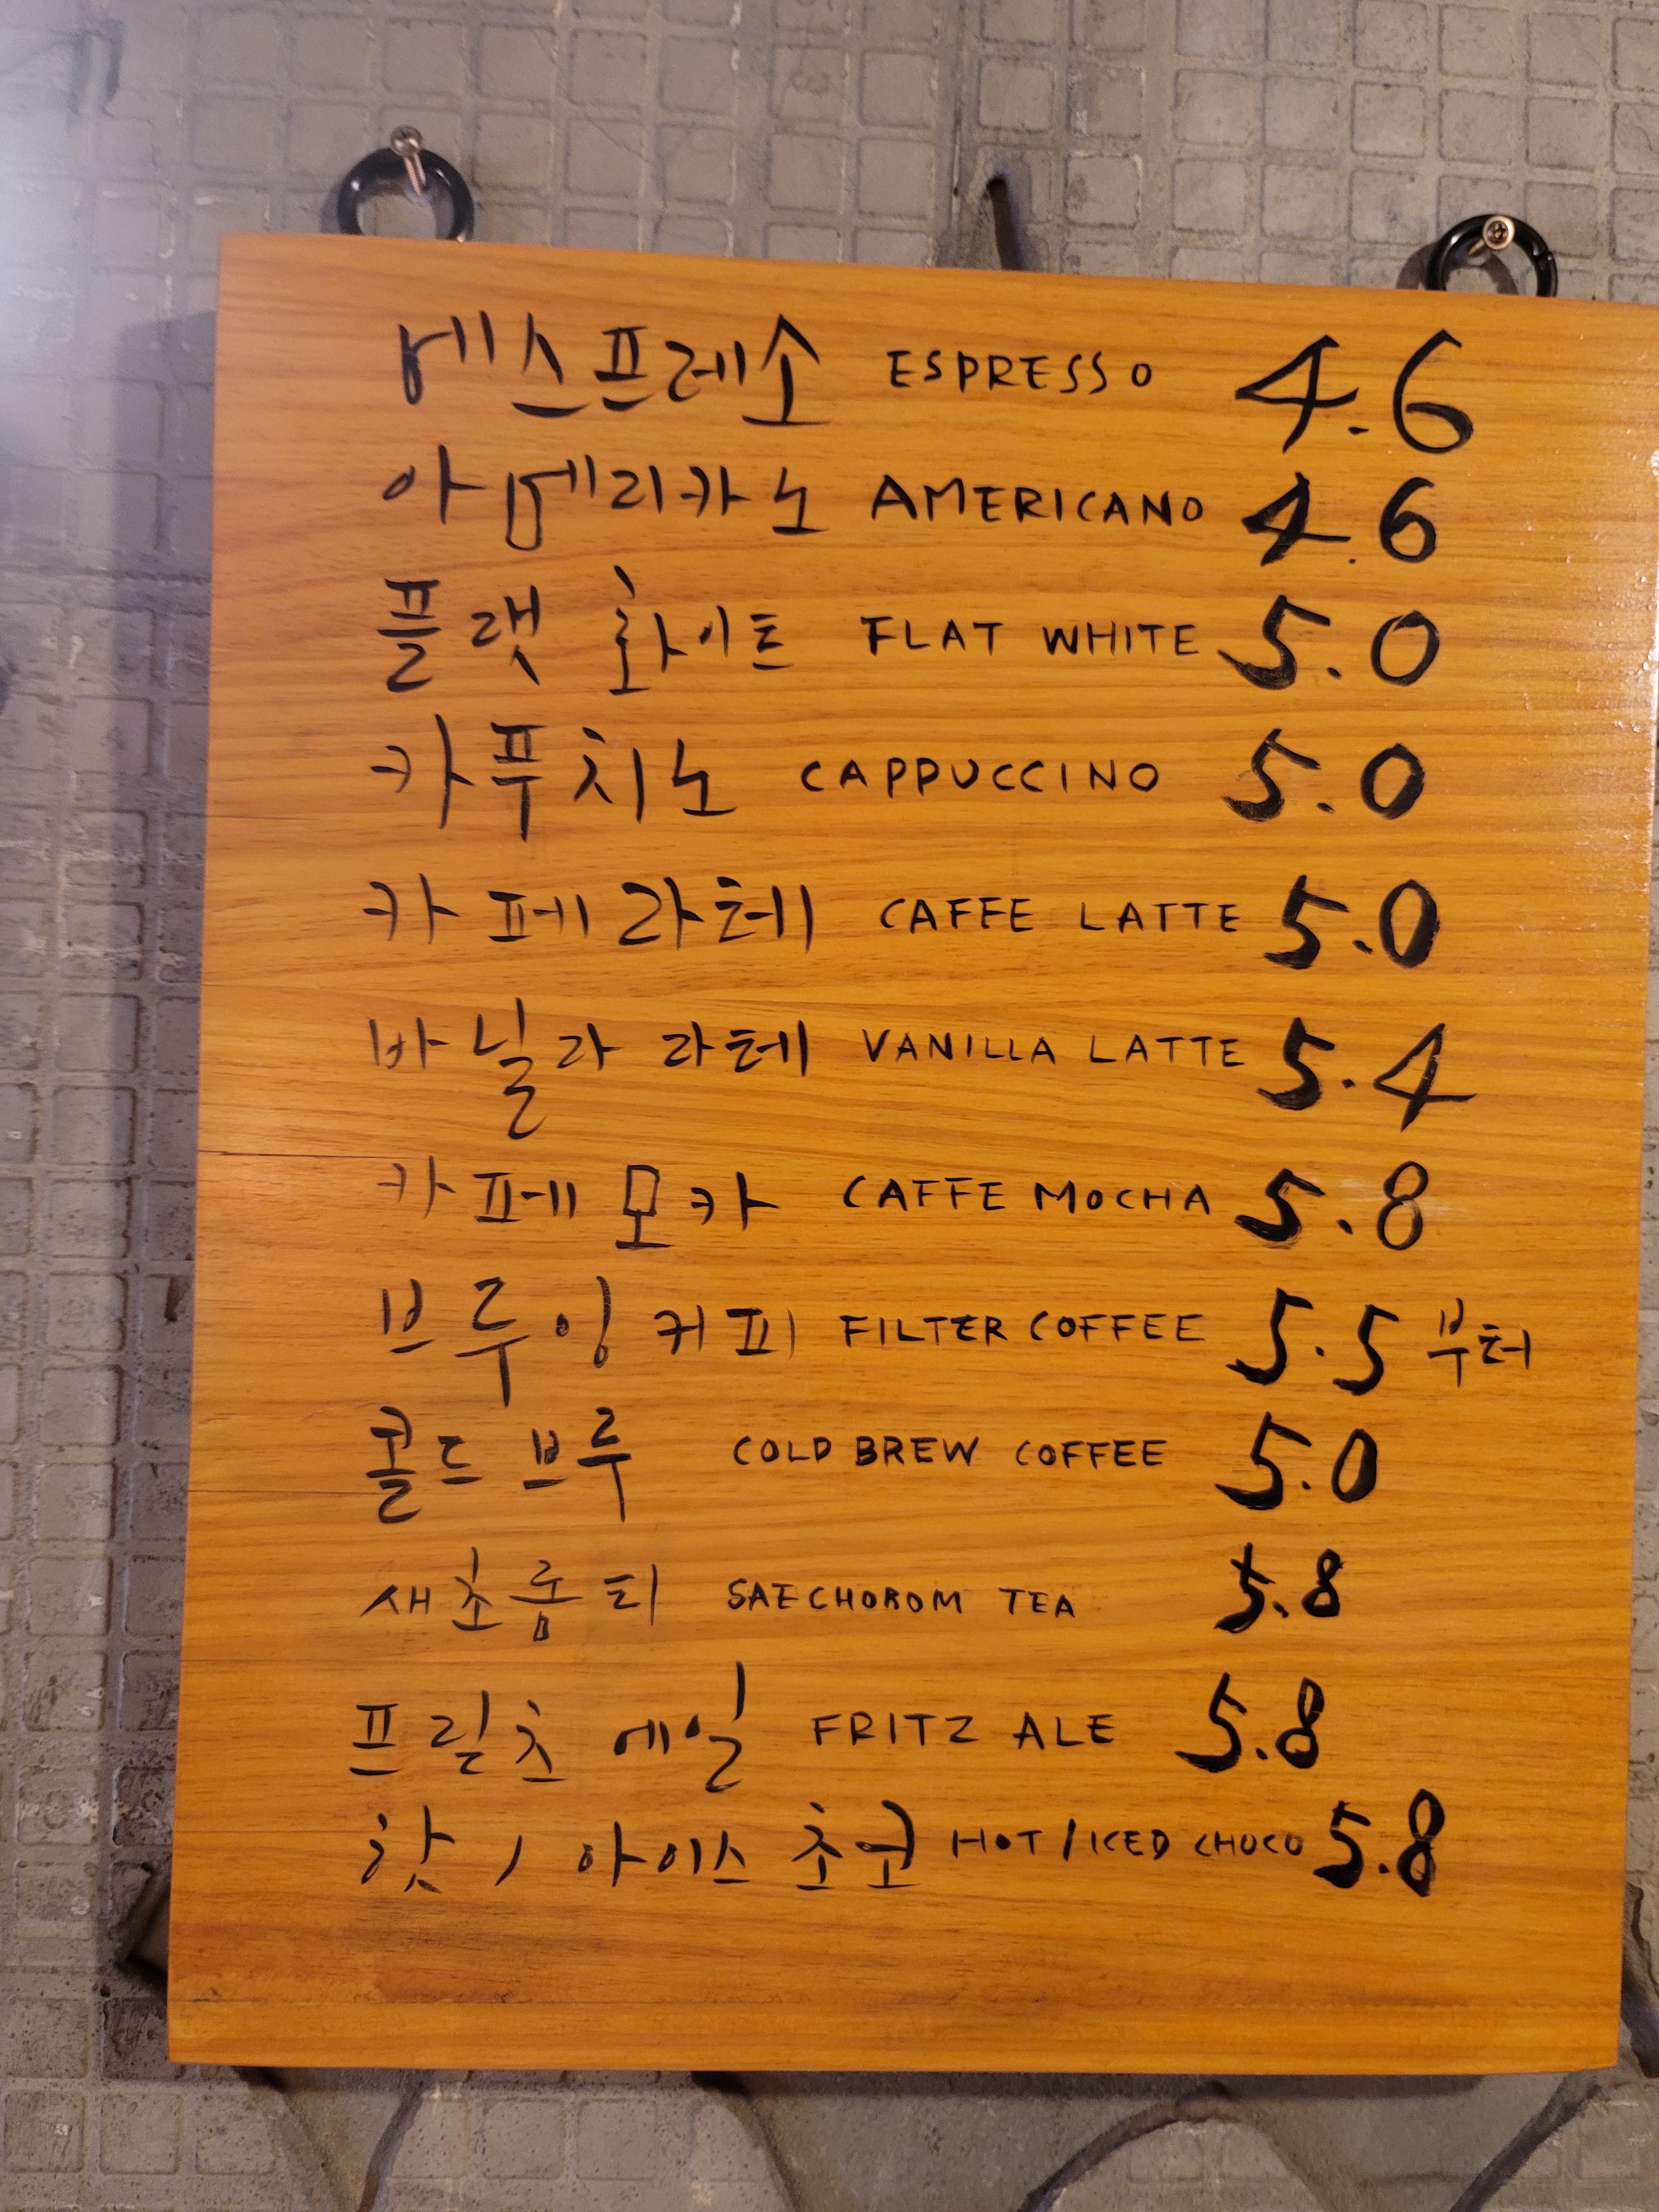 에스프레소 ESPRESSO 4.6
아메리카노 AMERICANO 4.6
플랫 화이트 FLAT WHITE 5.0
카푸치노 CAPPUCCINO 5.0
카페라테 CAFFE LATTE 5.0
바닐라 라테 VANILLA LATTE 5.4
카페 모카 CAFFE MOCHA 5.8
브루잉 커피 FILTER COFFEE 5.5 부터
콜드 브루 COLD BREW COFFEE 5.0
새초롬 티 SAECHOROM TEA 5.8
프릳츠 에일 FRITZ ALE 5.8
핫 / 아이스 초코 HOT / ICED CHOCO 5.8